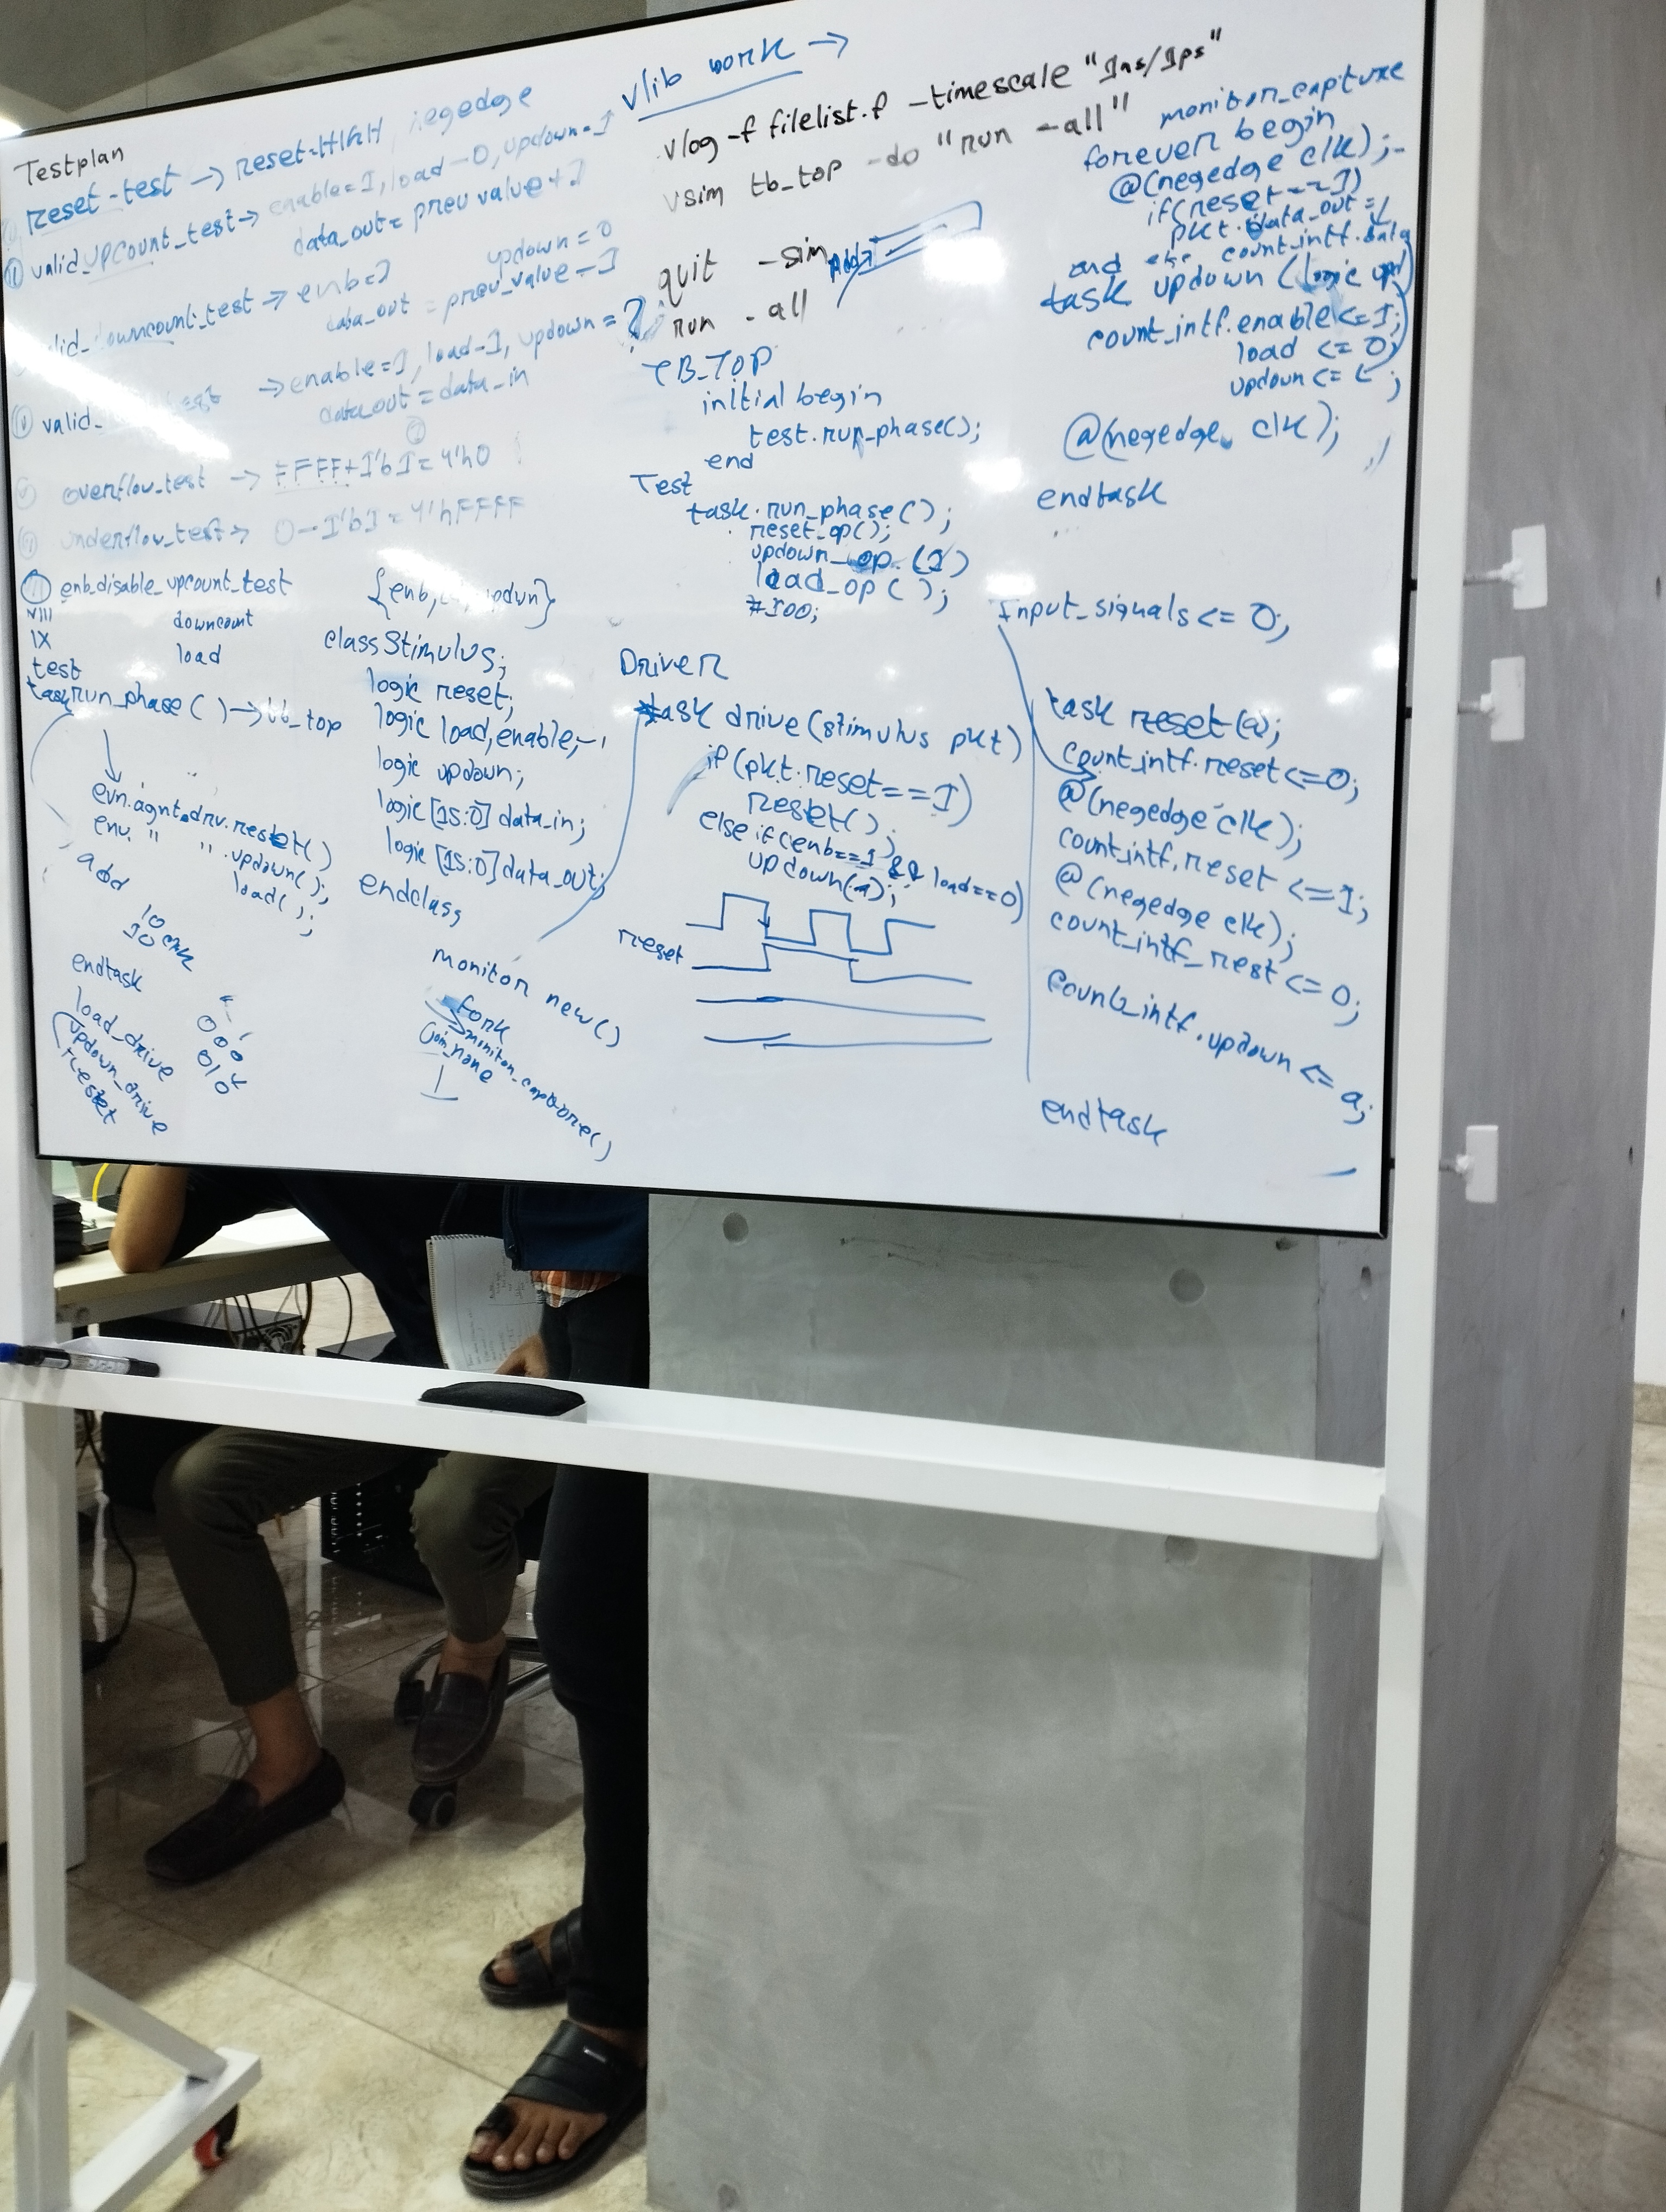 Testplan
reset-test → reset=HIGH, negedge
II valid_upcount_test → enable=1, load=0, updown=1
data_out = prev value + 1
updown=0
valid_downcount_test → enb=1
data_out = prev_value - 1
IV valid_ → enable=1, load=1, updown=?
data_out = data_in
overflow_test → FFFF+1'b1=4'h0
underflow_test → 0-1'b1=4'hFFFF
enb_disable_upcount_test
VIII downcount
IX load
test
task run_phase ( ) → tb_top
evn.agnt.drv.reset( )
env. " " .updown( );
load( );
add
10 clk
10
endtask
load_drive
updown_drive
reset
000
010
{enb, updwn}
class Stimulus;
logic reset;
logic load, enable;
logic updown;
logic [15:0] data_in;
logic [15:0] data_out;
endclass
monitor new( )
fork
monitor_capture( )
join_none
vlib work →
vlog -f filelist.f -timescale "1ns/1ps"
vsim tb_top -do "run -all"
quit -sim
run -all
TB_TOP
initial begin
test.run_phase();
end
Test
task.run_phase( );
reset_op( );
updown_op (1)
load_op ( );
#100;
Driver
task drive(stimulus pkt)
if (pkt.reset==1)
reset( );
else if (enb==1 && load==0)
updown(a);
reset
monitor_capture
forever begin
@(negedge clk);
if(reset==1)
pkt.data_out =
count_intf.data
end else
task updown (logic upd)
count_intf.enable <= 1;
load <= 0;
updown <= ;
@(negedge clk);
endtask
Input_signals <= 0;
task reset(a);
count_intf.reset <= 0;
@(negedge clk);
count_intf.reset <= 1;
@(negedge clk);
count_intf_rest <= 0;
count_intf.updown <= a;
endtask